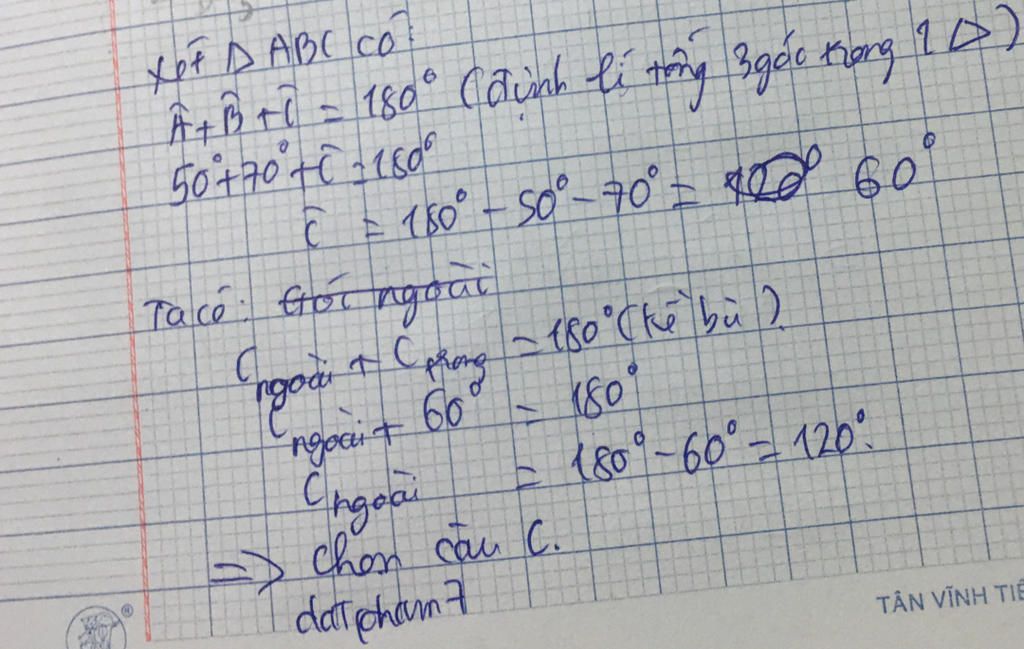 Xét Δ ABC có:
Â + B̂ + Ĉ = 180° (định lí tổng 3 góc trong 1 Δ)
50° + 70° + Ĉ = 180°
Ĉ = 180° - 50° - 70° = 60°
Ta có: Góc ngoài
C ngoài + C trong = 180° (kề bù)
C ngoài + 60° = 180°
C ngoài = 180° - 60° = 120°.
=> Chọn câu C.
datpham7
TÂN VĨNH TIẾ